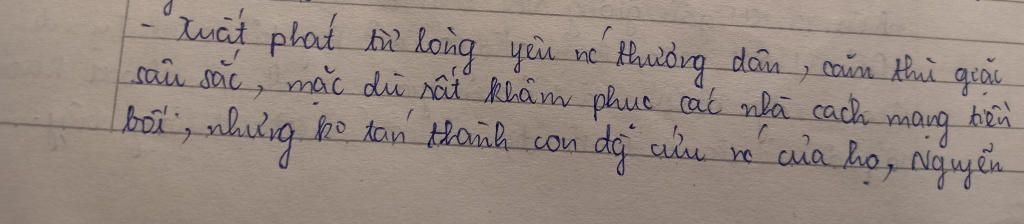 - Xuất phát từ lòng yêu nc' thương dân, căm thù giặc
sâu sắc, mặc dù rất khâm phục các nhà cách mạng tiền
bối, nhưng ko tán thành con đg cứu nc' của họ, Nguyễn